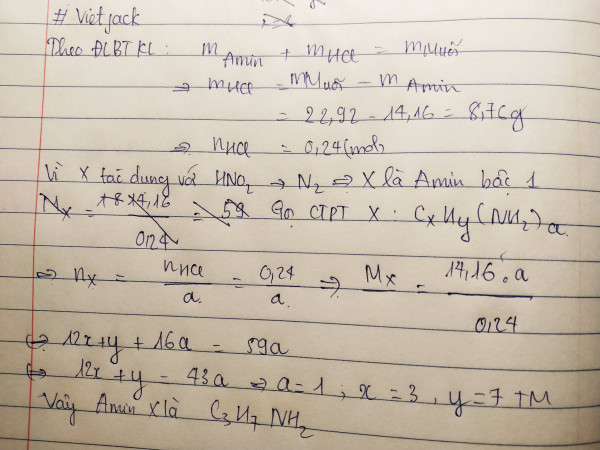 # Vietjack
Theo ĐLBTKL : m Amin + m HCl = m Muối
⇒ m HCl = m Muối − m Amin
= 22,92 − 14,16 = 8,76g
⇒ n HCl = 0,24 (mol)
Vì X tác dụng với HNO2 → N2 ⇒ X là Amin bậc 1
Mx = 14,16 / 0,24 = 59 Gọi CTPT X : CxHy(NH2)a
⇒ nx = nHCl / a = 0,24 / a ⇒ Mx = 14,16 . a / 0,24
⇔ 12x + y + 16a = 59a
⇔ 12x + y = 43a ⇒ a = 1 ; x = 3 , y = 7 TM
Vậy Amin X là C3H7NH2